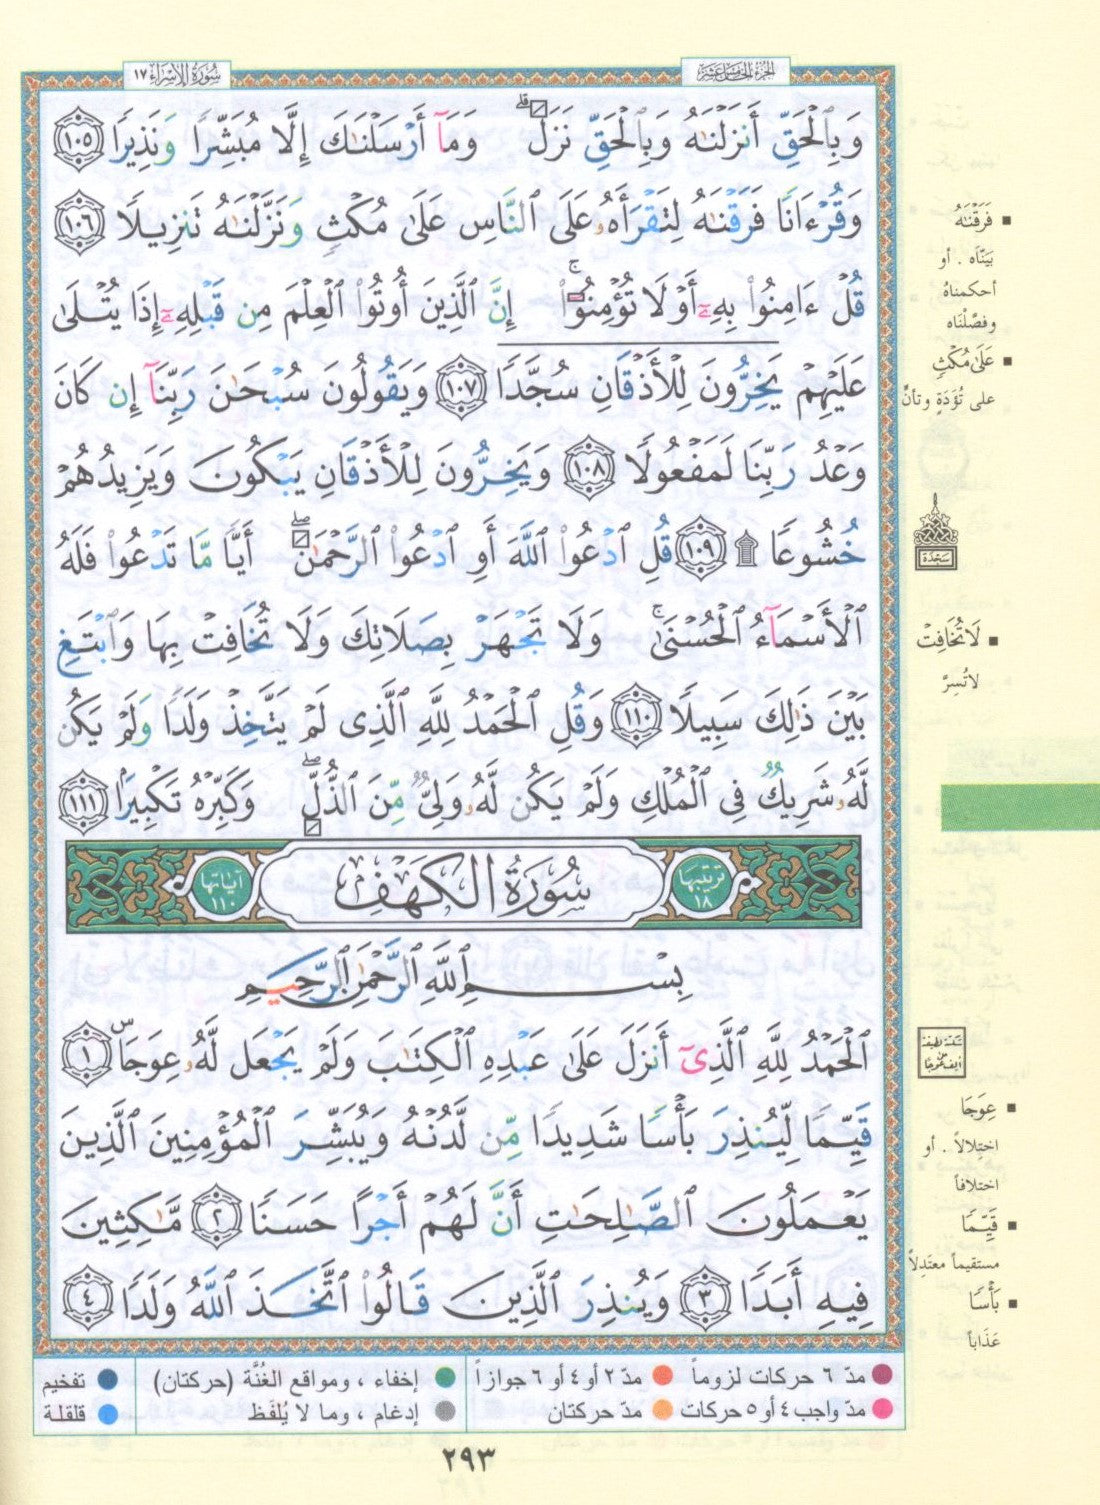 سُورَةُ الإِسْرَاء ١٧
الجُزءُ الخَامِسَ عَشَرَ
وَبِٱلْحَقِّ أَنزَلْنَٰهُ وَبِٱلْحَقِّ نَزَلَ ۗ وَمَآ أَرْسَلْنَٰكَ إِلَّا مُبَشِّرًا وَنَذِيرًا ١٠٥
وَقُرْءَانًا فَرَقْنَٰهُ لِتَقْرَأَهُۥ عَلَى ٱلنَّاسِ عَلَىٰ مُكْثٍ وَنَزَّلْنَٰهُ تَنزِيلًا ١٠٦
قُلْ ءَامِنُوا۟ بِهِۦٓ أَوْ لَا تُؤْمِنُوٓا۟ ۚ إِنَّ ٱلَّذِينَ أُوتُوا۟ ٱلْعِلْمَ مِن قَبْلِهِۦٓ إِذَا يُتْلَىٰ
عَلَيْهِمْ يَخِرُّونَ لِلْأَذْقَانِ سُجَّدًا ١٠٧ وَيَقُولُونَ سُبْحَٰنَ رَبِّنَآ إِن كَانَ
وَعْدُ رَبِّنَا لَمَفْعُولًا ١٠٨ وَيَخِرُّونَ لِلْأَذْقَانِ يَبْكُونَ وَيَزِيدُهُمْ
خُشُوعًا ۩ ١٠٩ قُلِ ٱدْعُوا۟ ٱللَّهَ أَوِ ٱدْعُوا۟ ٱلرَّحْمَٰنَ ۖ أَيًّا مَّا تَدْعُوا۟ فَلَهُ
ٱلْأَسْمَآءُ ٱلْحُسْنَىٰ ۚ وَلَا تَجْهَرْ بِصَلَاتِكَ وَلَا تُخَافِتْ بِهَا وَٱبْتَغِ
بَيْنَ ذَٰلِكَ سَبِيلًا ١١٠ وَقُلِ ٱلْحَمْدُ لِلَّهِ ٱلَّذِى لَمْ يَتَّخِذْ وَلَدًا وَلَمْ يَكُن
لَّهُۥ شَرِيكٌ فِى ٱلْمُلْكِ وَلَمْ يَكُن لَّهُۥ وَلِىٌّ مِّنَ ٱلذُّلِّ ۖ وَكَبِّرْهُ تَكْبِيرًۢا ١١١
ترتيبها ١٨ سُورَةُ الكَهْفِ آياتها ١١٠
بِسْمِ ٱللَّهِ ٱلرَّحْمَٰنِ ٱلرَّحِيمِ
ٱلْحَمْدُ لِلَّهِ ٱلَّذِىٓ أَنزَلَ عَلَىٰ عَبْدِهِ ٱلْكِتَٰبَ وَلَمْ يَجْعَل لَّهُۥ عِوَجَا ۜ ١
قَيِّمًا لِّيُنذِرَ بَأْسًا شَدِيدًا مِّن لَّدُنْهُ وَيُبَشِّرَ ٱلْمُؤْمِنِينَ ٱلَّذِينَ
يَعْمَلُونَ ٱلصَّٰلِحَٰتِ أَنَّ لَهُمْ أَجْرًا حَسَنًا ٢ مَّٰكِثِينَ
فِيهِ أَبَدًا ٣ وَيُنذِرَ ٱلَّذِينَ قَالُوا۟ ٱتَّخَذَ ٱللَّهُ وَلَدًا ٤
فَرَقْنَٰهُ
بَيَّنَّاه . أو
أحكمناهُ
وفصَّلْنَاه
عَلَىٰ مُكْثٍ
على تُؤَدَةٍ وتأنٍّ
سَجْدَة
لَا تُخَافِتْ
لا تُسِرَّ
سكتة لطيفة
على
ألف عوجا
عِوَجَا
اختلالاً . أو
اختلافاً
قَيِّمًا
مستقيماً معتَدِلاً
بَأْسًا
عَذَاباً
مدّ ٦ حركات لزوماً مدّ ٢ أو ٤ أو ٦ جوازاً إخفاء ، ومواقع الغُنَّة (حركتان) تفخيم
مدّ واجب ٤ أو ٥ حركات مدّ حركتان إدغام ، وما لا يُلفَظ قلقلة
٢٩٣